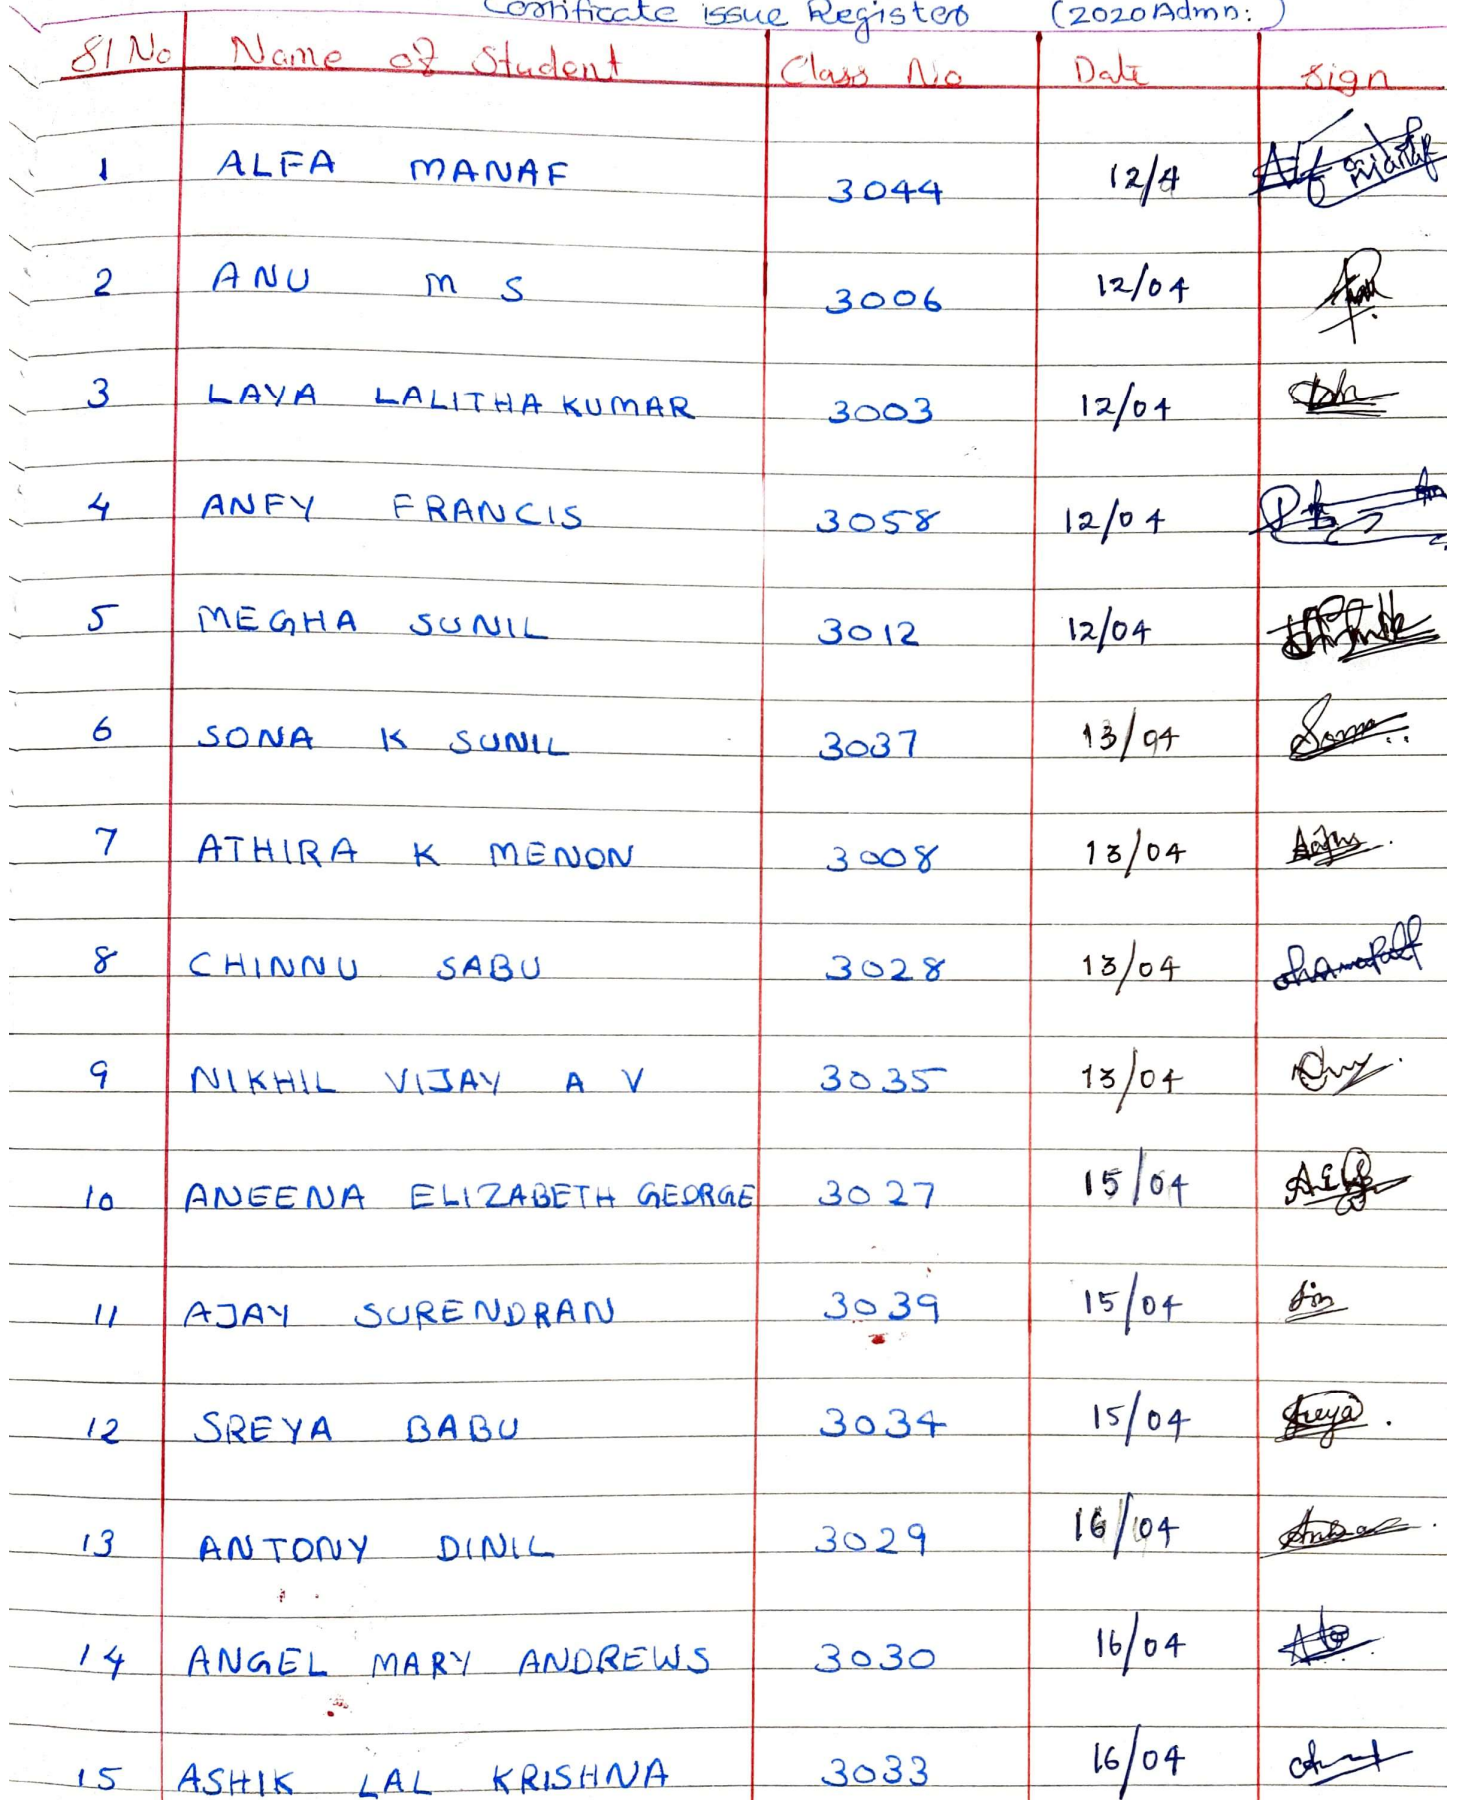 Certificate issue Register (2020 Admn:)
Sl No Name of Student Class No Date Sign
1 ALFA MANAF 3044 12/4 Alfa Manaf
2 ANU M S 3006 12/04
3 LAYA LALITHAKUMAR 3003 12/04
4 ANFY FRANCIS 3058 12/04
5 MEGHA SUNIL 3012 12/04
6 SONA K SUNIL 3037 13/04 Sona
7 ATHIRA K MENON 3008 13/04
8 CHINNU SABU 3028 13/04
9 NIKHIL VIJAY A V 3035 13/04
10 ANEENA ELIZABETH GEORGE 3027 15/04
11 AJAY SURENDRAN 3039 15/04
12 SREYA BABU 3034 15/04 Sreya
13 ANTONY DINIL 3029 16/04
14 ANGEL MARY ANDREWS 3030 16/04
15 ASHIK LAL KRISHNA 3033 16/04